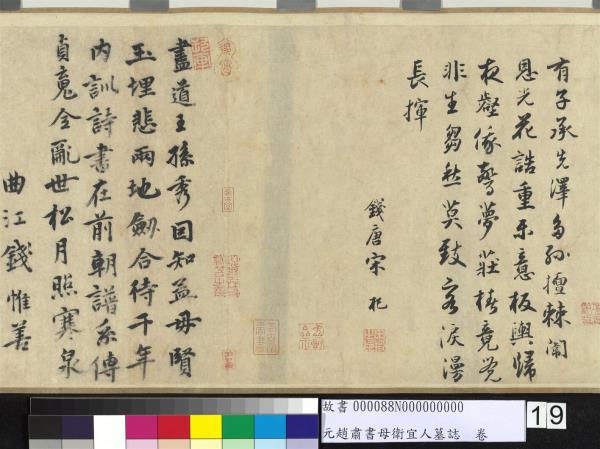 有子承先澤多孫擅棘闈
恩光花誥重樂意板輿歸
夜壑俄驚夢莊椿竟覺
非生芻愁莫致客淚漫
長揮
錢唐宋杞
盡道王孫秀因知孟母賢
玉埋悲兩地劍合待千年
內訓詩書在前朝譜系傳
貞魂今亂世松月照寒泉
曲江錢惟善
故書 000088N000000000
元趙肅書母衛宜人墓誌 卷
19